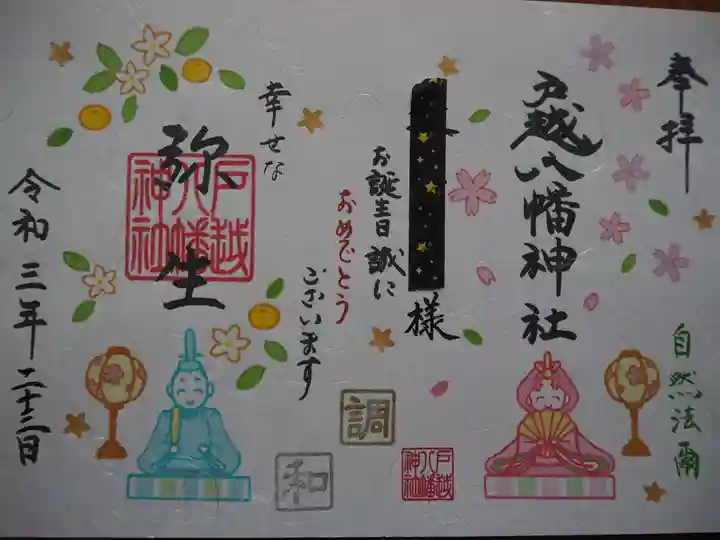 奉拝
戸越八幡神社
自然法爾
様
お誕生日誠に
おめでとう
ございます
幸せな
弥生
戸越八幡神社
令和三年二十三日
調
和
戸越八幡神社